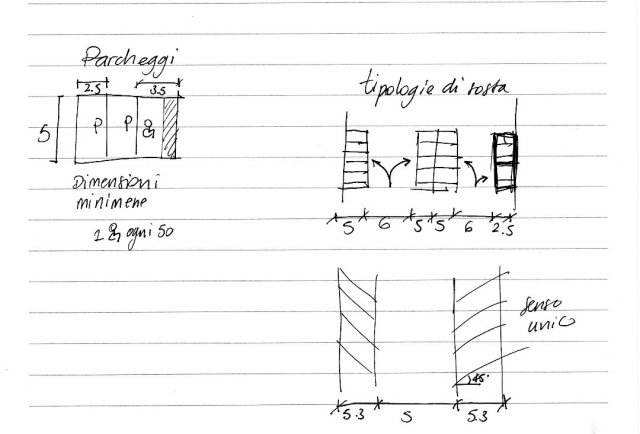 Parcheggi
2.5 3.5
5 P P
Dimensioni
minimene
1 ogni 50
tipologie di sosta
5 6 5 5 6 2.5
senso
unico
45°
5.3 5 5.3